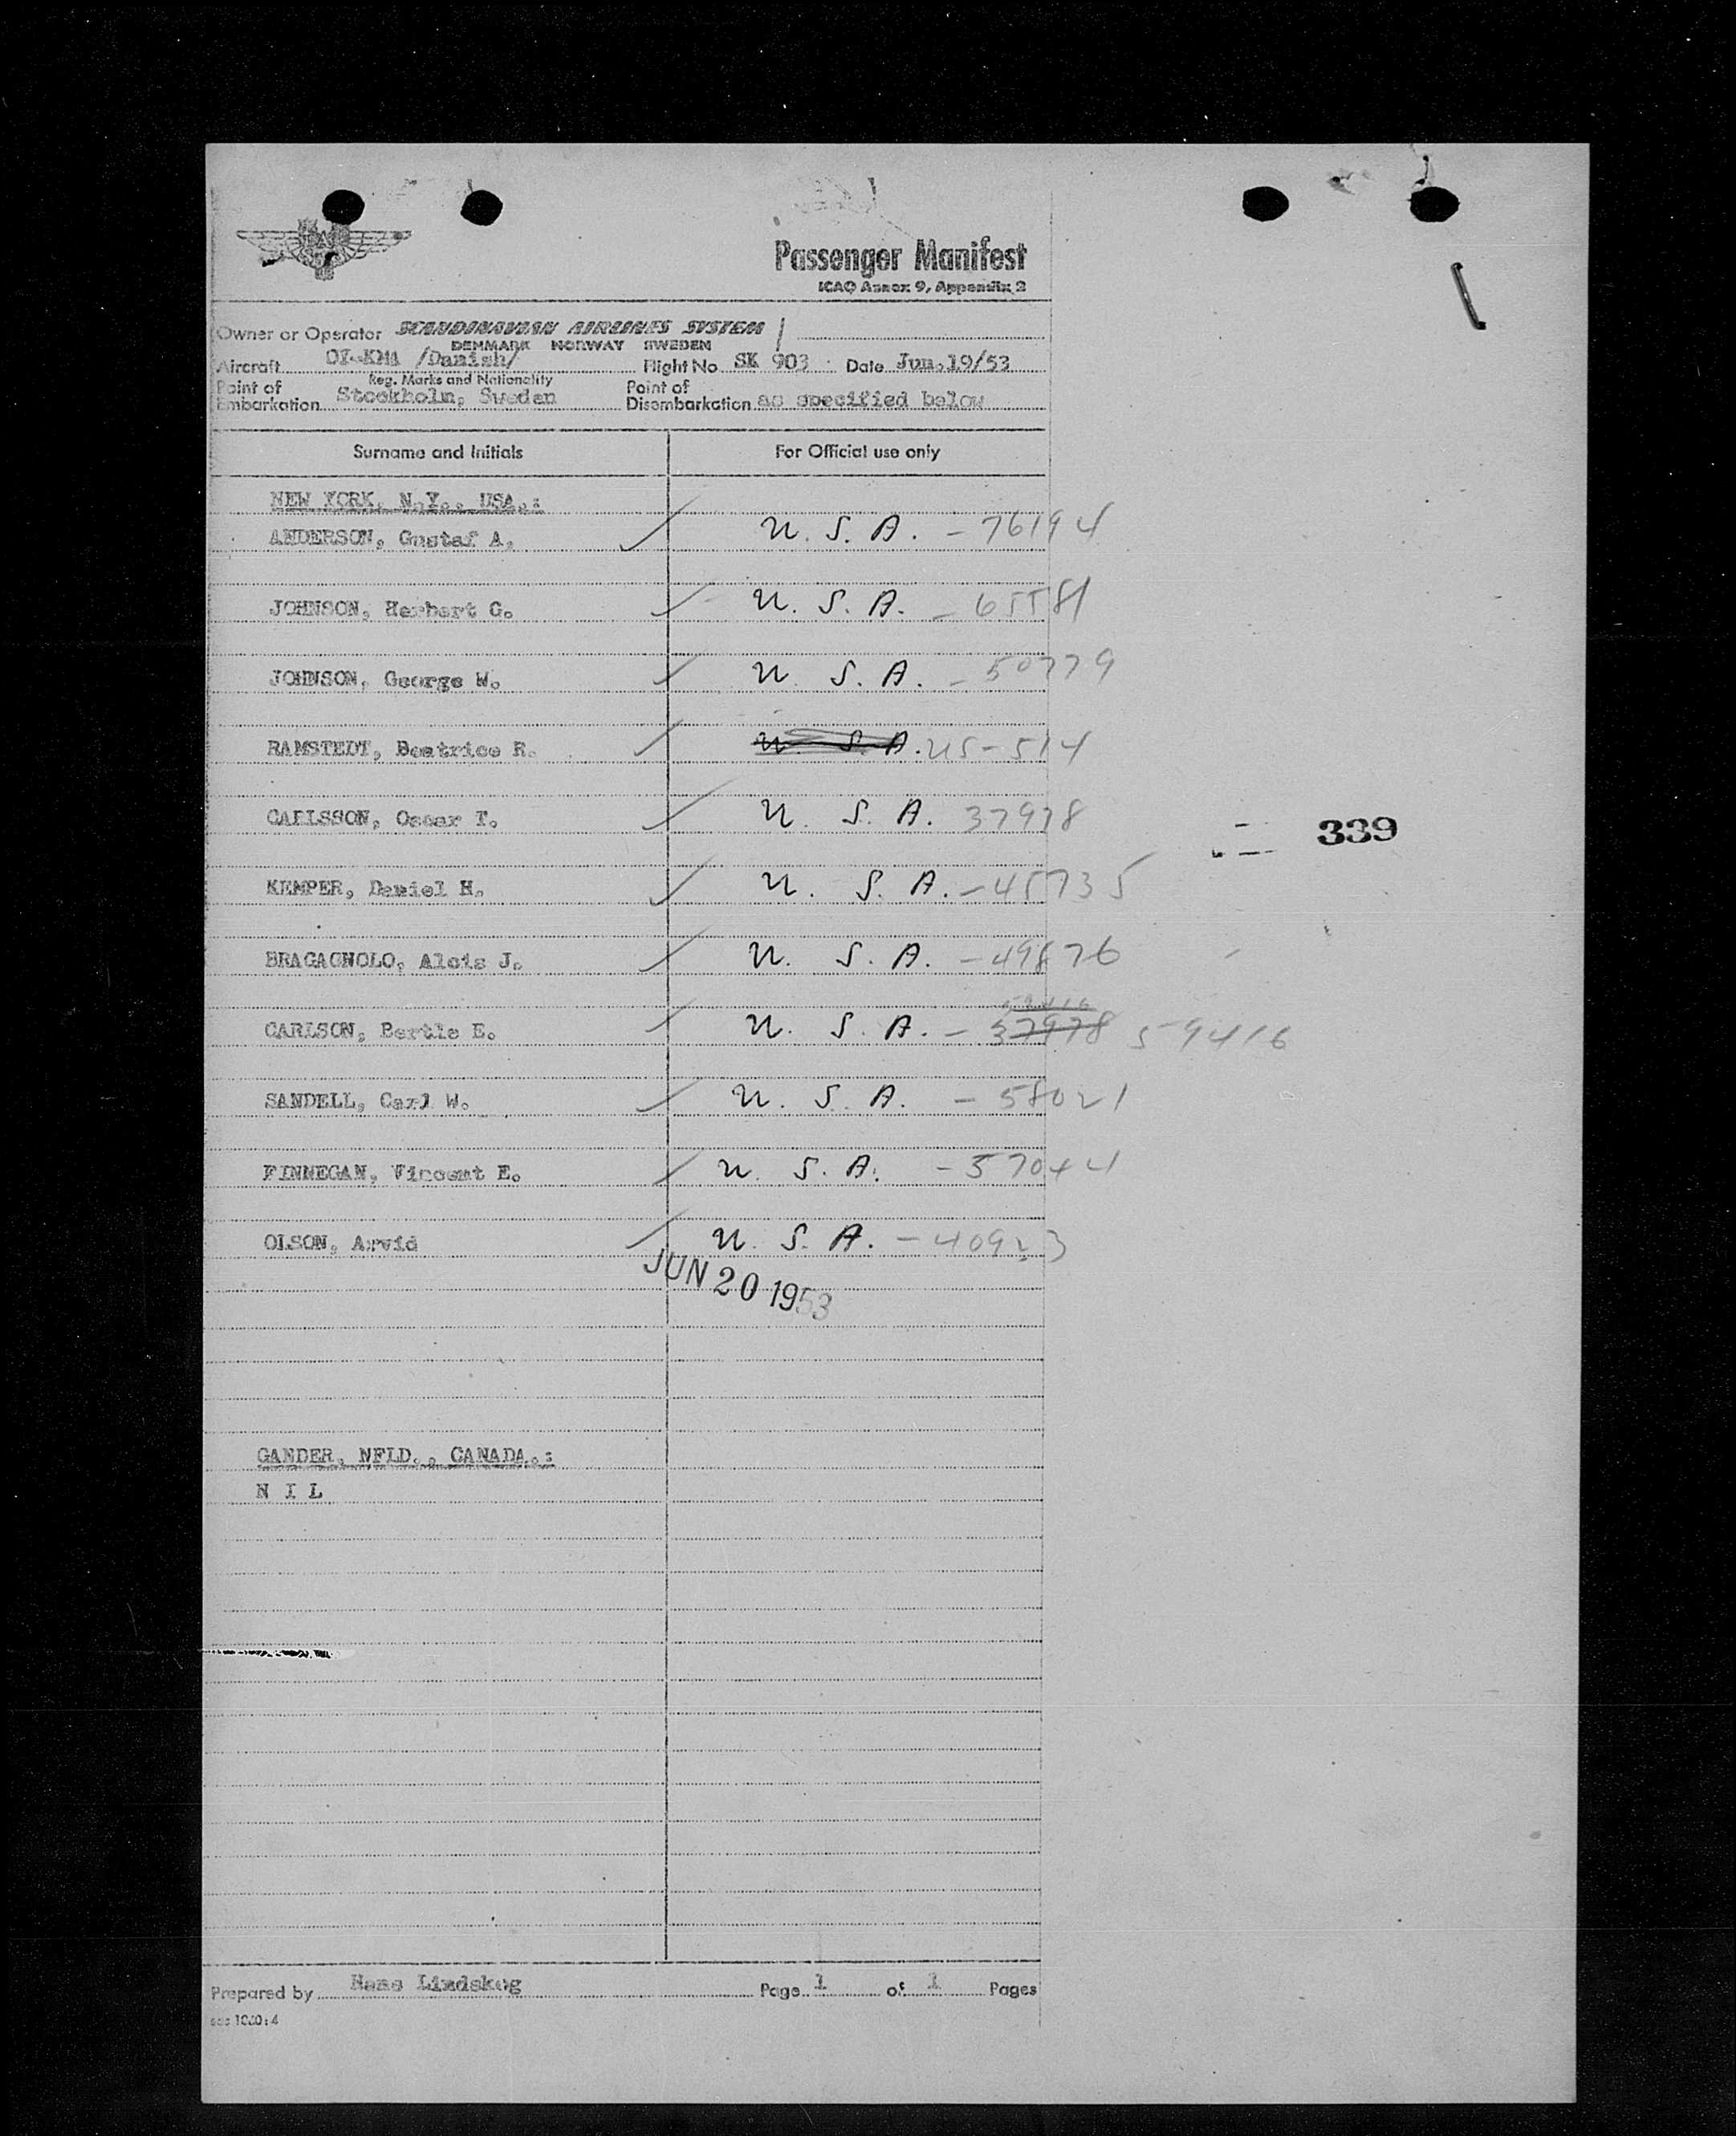 Passenger Manifest
ICAO Annex 9, Appendix 2
Owner or Operator SCANDINAVIAN AIRLINES SYSTEM
DENMARK NORWAY SWEDEN
Aircraft /Danish/ Flight No SK 903 Date Jun.19/53
Reg. Marks and Nationality
Point of Embarkation Stockholm, Sweden Point of Disembarkation as specified below
Surname and Initials For Official use only
NEW YORK, N.Y., USA.:
ANDERSON, Gustaf A. U.S.A. - 76194
JOHNSON, Herbert G. U.S.A. - 65581
JOHNSON, George W. U.S.A. - 50779
RAMSTEDT, Beatrice R. U.S.A. US-514
CARLSSON, Oscar T. U.S.A. 37978
KEMPER, Daniel H. U.S.A. - 45735
339
BRAGAGNOLO, Alois J. U.S.A. - 49876
59416
CARLSON, Bertle E. U.S.A. - 37978 59416
SANDELL, Carl W. U.S.A. - 58021
FINNEGAN, Vincent E. U.S.A. - 57044
OLSON, Arvid U.S.A. - 40923
JUN 20 1953
GANDER, NFLD., CANADA.:
N I L
Prepared by Hans Lindskog Page 1 of 1 Pages